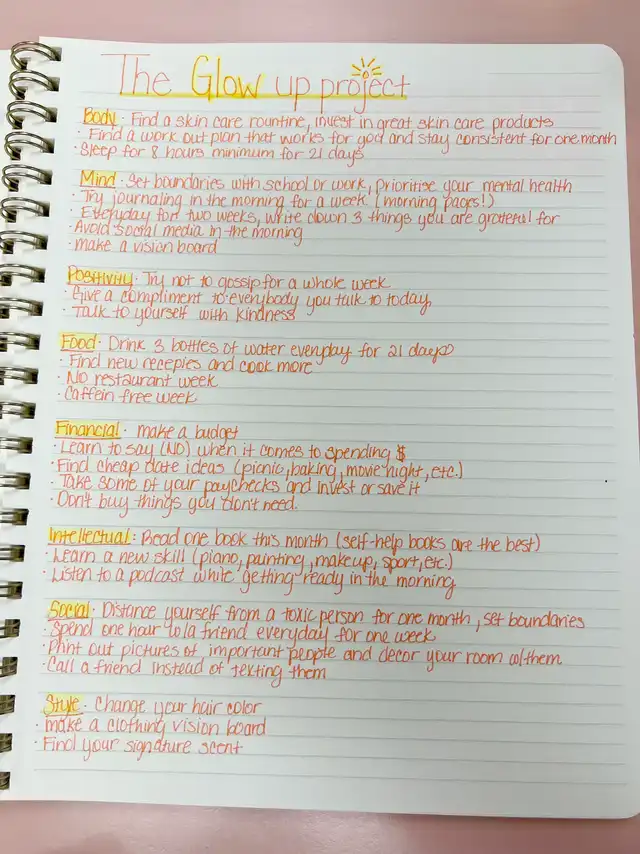 The Glow up project
Body · Find a skin care rountine, invest in great skin care products
· Find a work out plan that works for god and stay consistent for one month
· Sleep for 8 hours minimum for 21 days
Mind · Set boundaries with school or work, prioritise your mental health
· Try journaling in the morning for a week (morning pages!)
· Everyday for two weeks, write down 3 things you are grateful for
· Avoid social media in the morning
· make a vision board
Positivity · Try not to gossip for a whole week
· Give a compliment to everybody you talk to today,
· Talk to yourself with kindness
Food · Drink 3 bottles of water everyday for 21 days
· Find new recepies and cook more
· No restaurant week
· Caffein free week
Financial · make a budget
· Learn to say (NO) when it comes to spending $
· Find cheap date ideas (picnic, baking, movie night, etc.)
· Take some of your paychecks and invest or save it
· Don't buy things you don't need.
Intellectual : Read one book this month (self-help books are the best)
· Learn a new skill (piano, painting, makeup, sport, etc.)
· Listen to a podcast while getting ready in the morning
Social · Distance yourself from a toxic person for one month, set boundaries
· Spend one hour w/a friend everyday for one week
· Print out pictures of important people and decor your room w/them
· Call a friend instead of texting them
Style · Change your hair color
· make a clothing vision board
· Find your signature scent